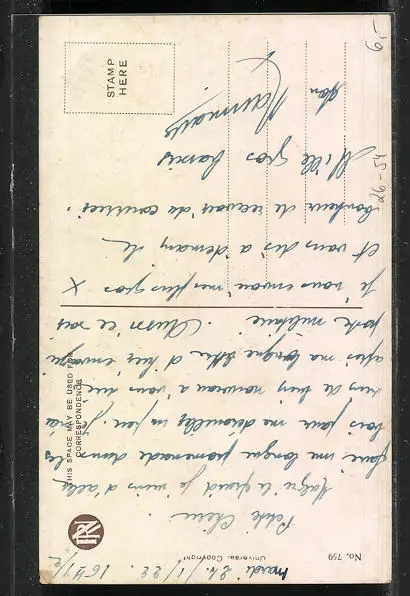 mardi 24/1/22. 16 H 1/2
Petite Chérie.
Malgré le froid je viens d'aller
faire une longue promenade dans les
bois pour me dérouiller un peu. Je n'ai
rien de bien nouveau à vous dire
après ma longue lettre d'hier envoyée
poste militaire. Aussi ce soir
je vous envoie mes plus gros X
et vous dis à demain, le
bonheur de recevoir du courrier.
Mille gros baisers
ton
No. 759
Universal Copyright
THIS SPACE MAY BE USED FOR
CORRESPONDENCE
STAMP
HERE
26-54
6,-